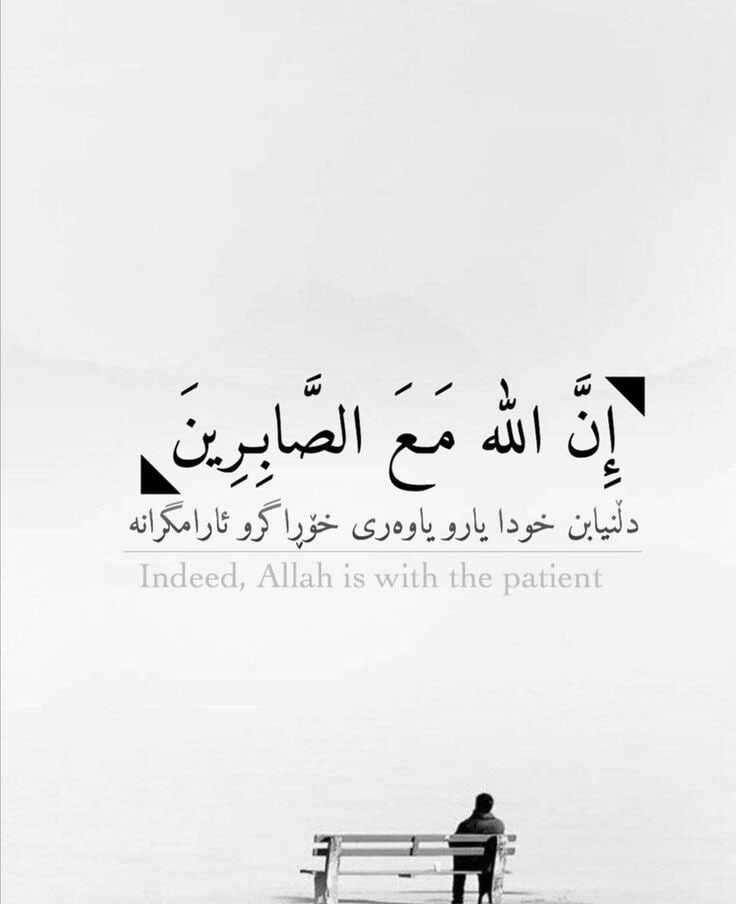 إِنَّ الله مَعَ الصَّابِرِينَ
دڵنیابن خودا یارو یاوەری خۆڕاگرو ئارامگرانە
Indeed, Allah is with the patient